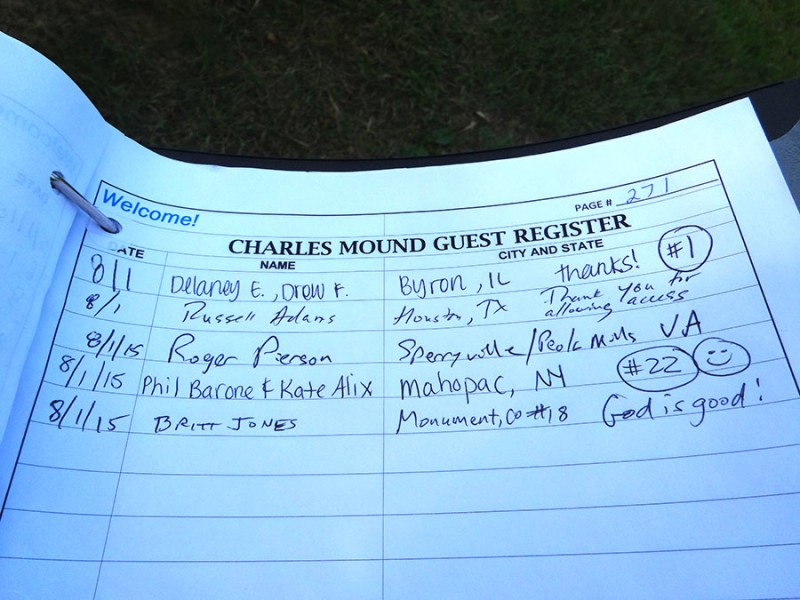 Welcome!
PAGE # 271
CHARLES MOUND GUEST REGISTER
DATE NAME CITY AND STATE
8/1 Delaney E., Drew F. Byron, IL thanks! #1
8/1 Russell Adams Houston, TX Thank you for allowing access
8/1/15 Roger Pierson Sperryville/Peola Mills VA
8/1/15 Phil Barone & Kate Alix Mahopac, NY #22
8/1/15 BRITT JONES Monument, CO #18 God is good!